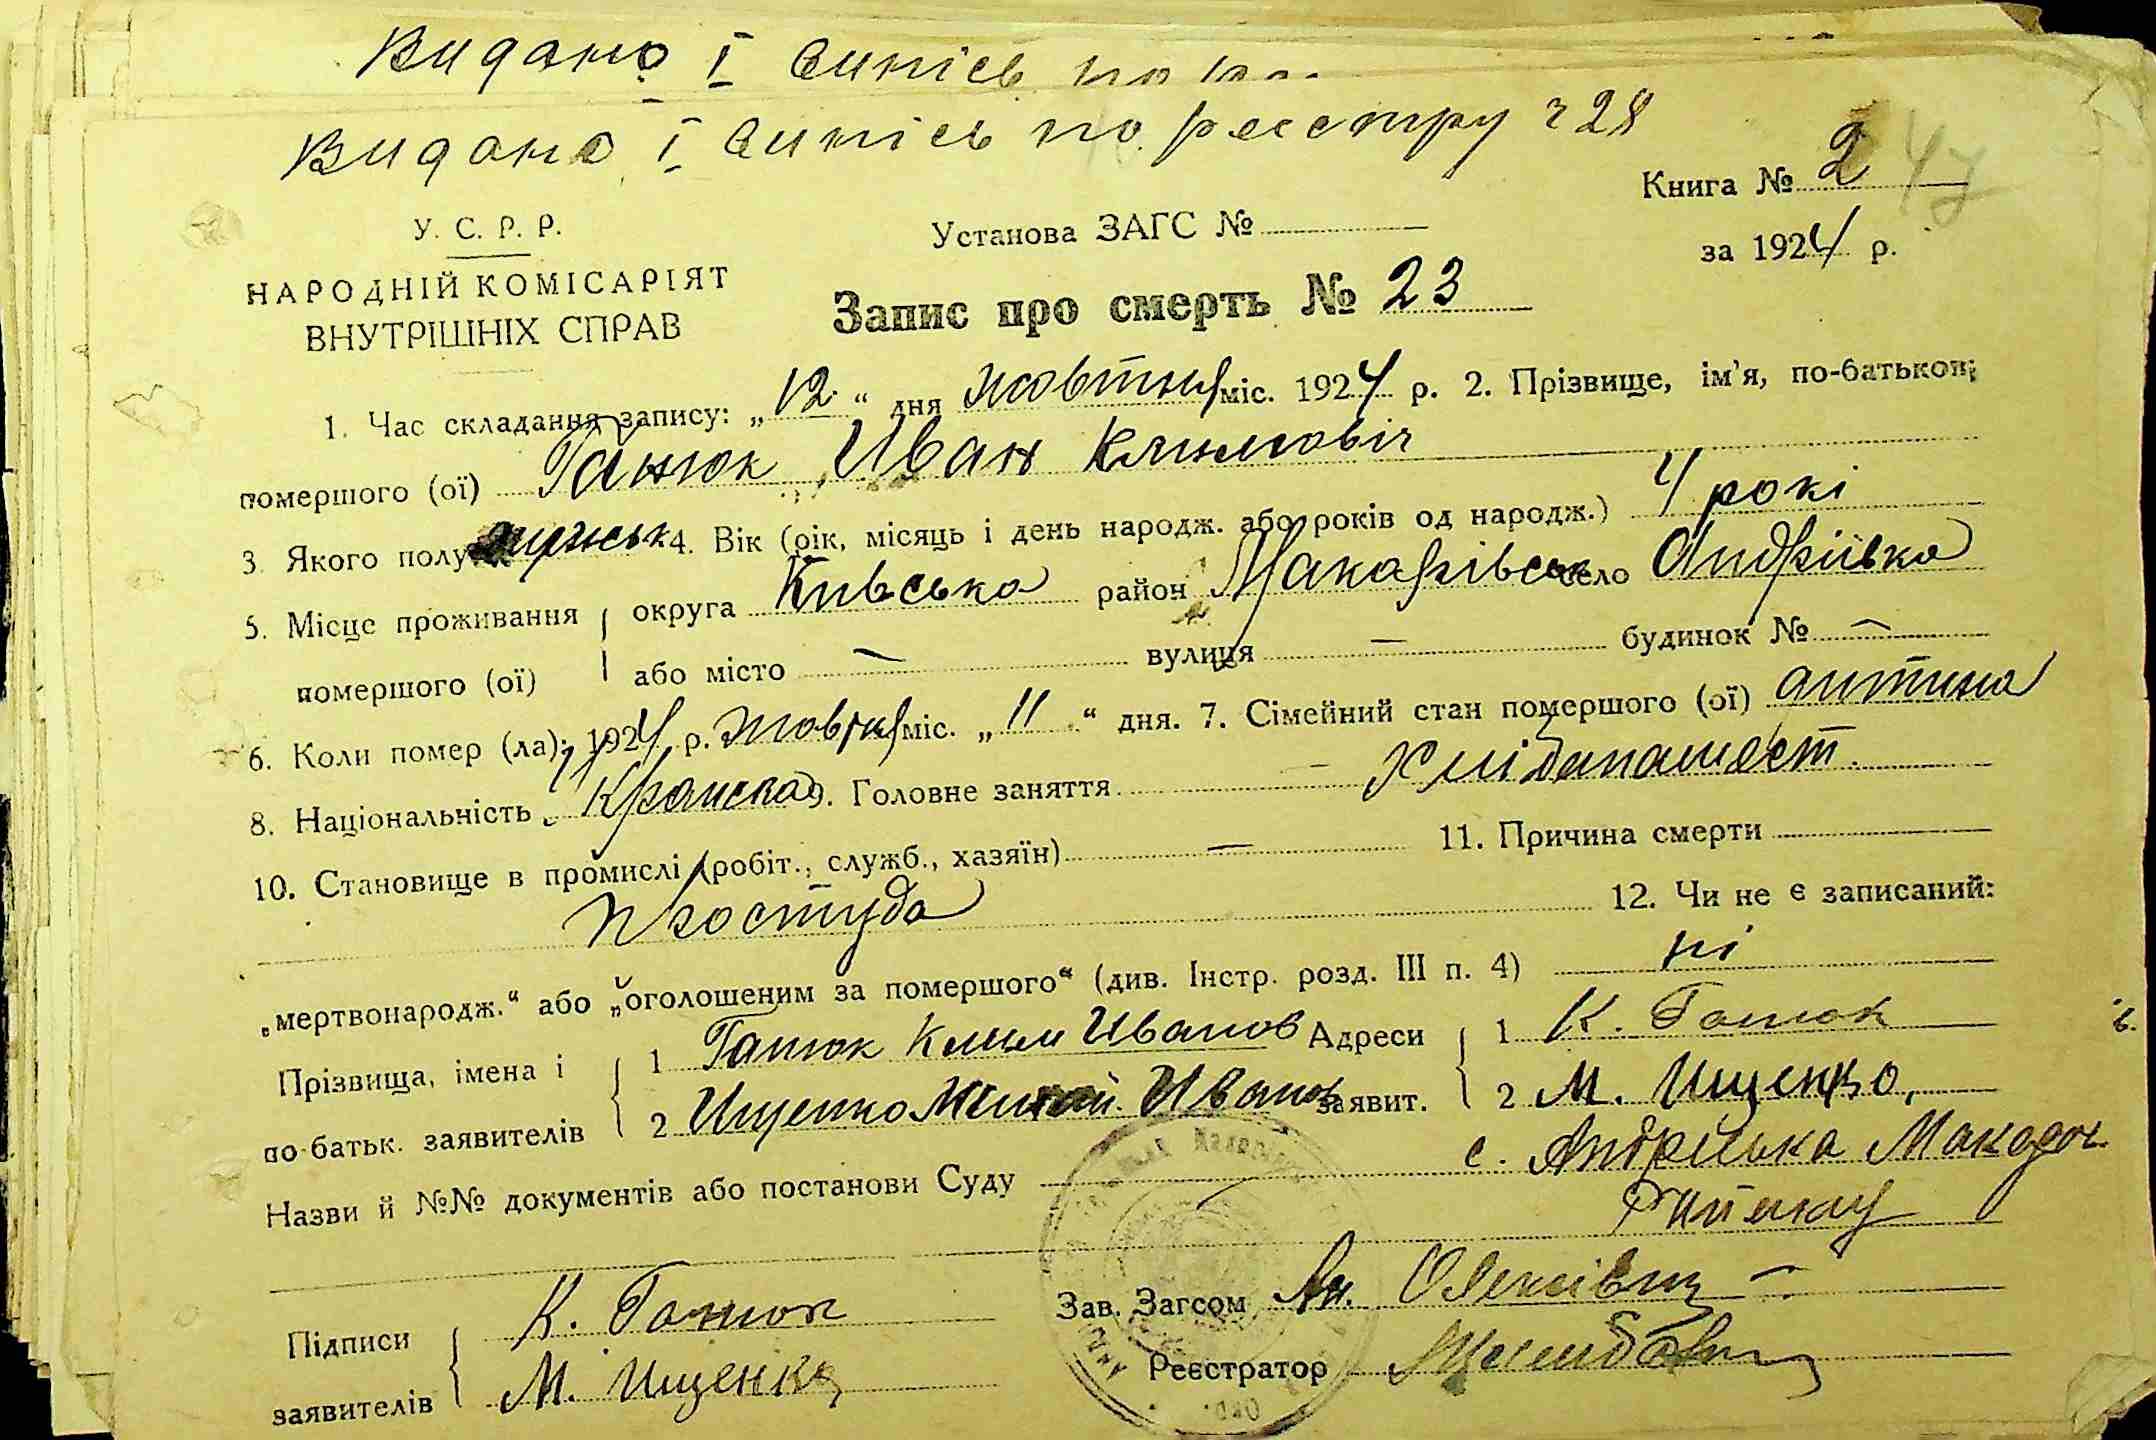 Видано I випісь по
Видано I випісь по реєстру ч 28
Книга № 2 47
У. С. Р. Р.
Установа ЗАГС №
за 1924 р.
НАРОДНІЙ КОМІСАРІЯТ
ВНУТРІШНІХ СПРАВ
Запис про смерть № 23
1. Час складання запису: „12“ дня жовтня міс. 1924 р. 2. Прізвище, ім'я, по-батькові
помершого (ої) Ганюк Иван Климовіч
3. Якого полу мужськ 4. Вік (рік, місяць і день народж. або років од народж.) 4 рокі
5. Місце проживання округа Київська район Макарівськ село Андріївка
помершого (ої) або місто — вулиця — будинок № —
6. Коли помер (ла): 1924 р. жовтня міс. „11“ дня. 7. Сімейний стан помершого (ої) дитина
8. Національність Украінска 9. Головне заняття – хлібапашест.
10. Становище в промислі (робіт., служб., хазяїн) — 11. Причина смерти
простуда 12. Чи не є записаний:
„мертвонародж.“ або „оголошеним за помершого“ (див. Інстр. розд. III п. 4) ні
Прізвища, імена і 1 Ганюк Клим Иванов Адреси 1 К. Ганюк
по-батьк. заявителів 2 Ищенко Иванов заявит. 2 М. Ищенко,
с. Андріївка Макаров.
Назви й №№ документів або постанови Суду
району
Підписи К. Ганюк Зав. Загсом
заявителів М. Ищенко Реєстратор